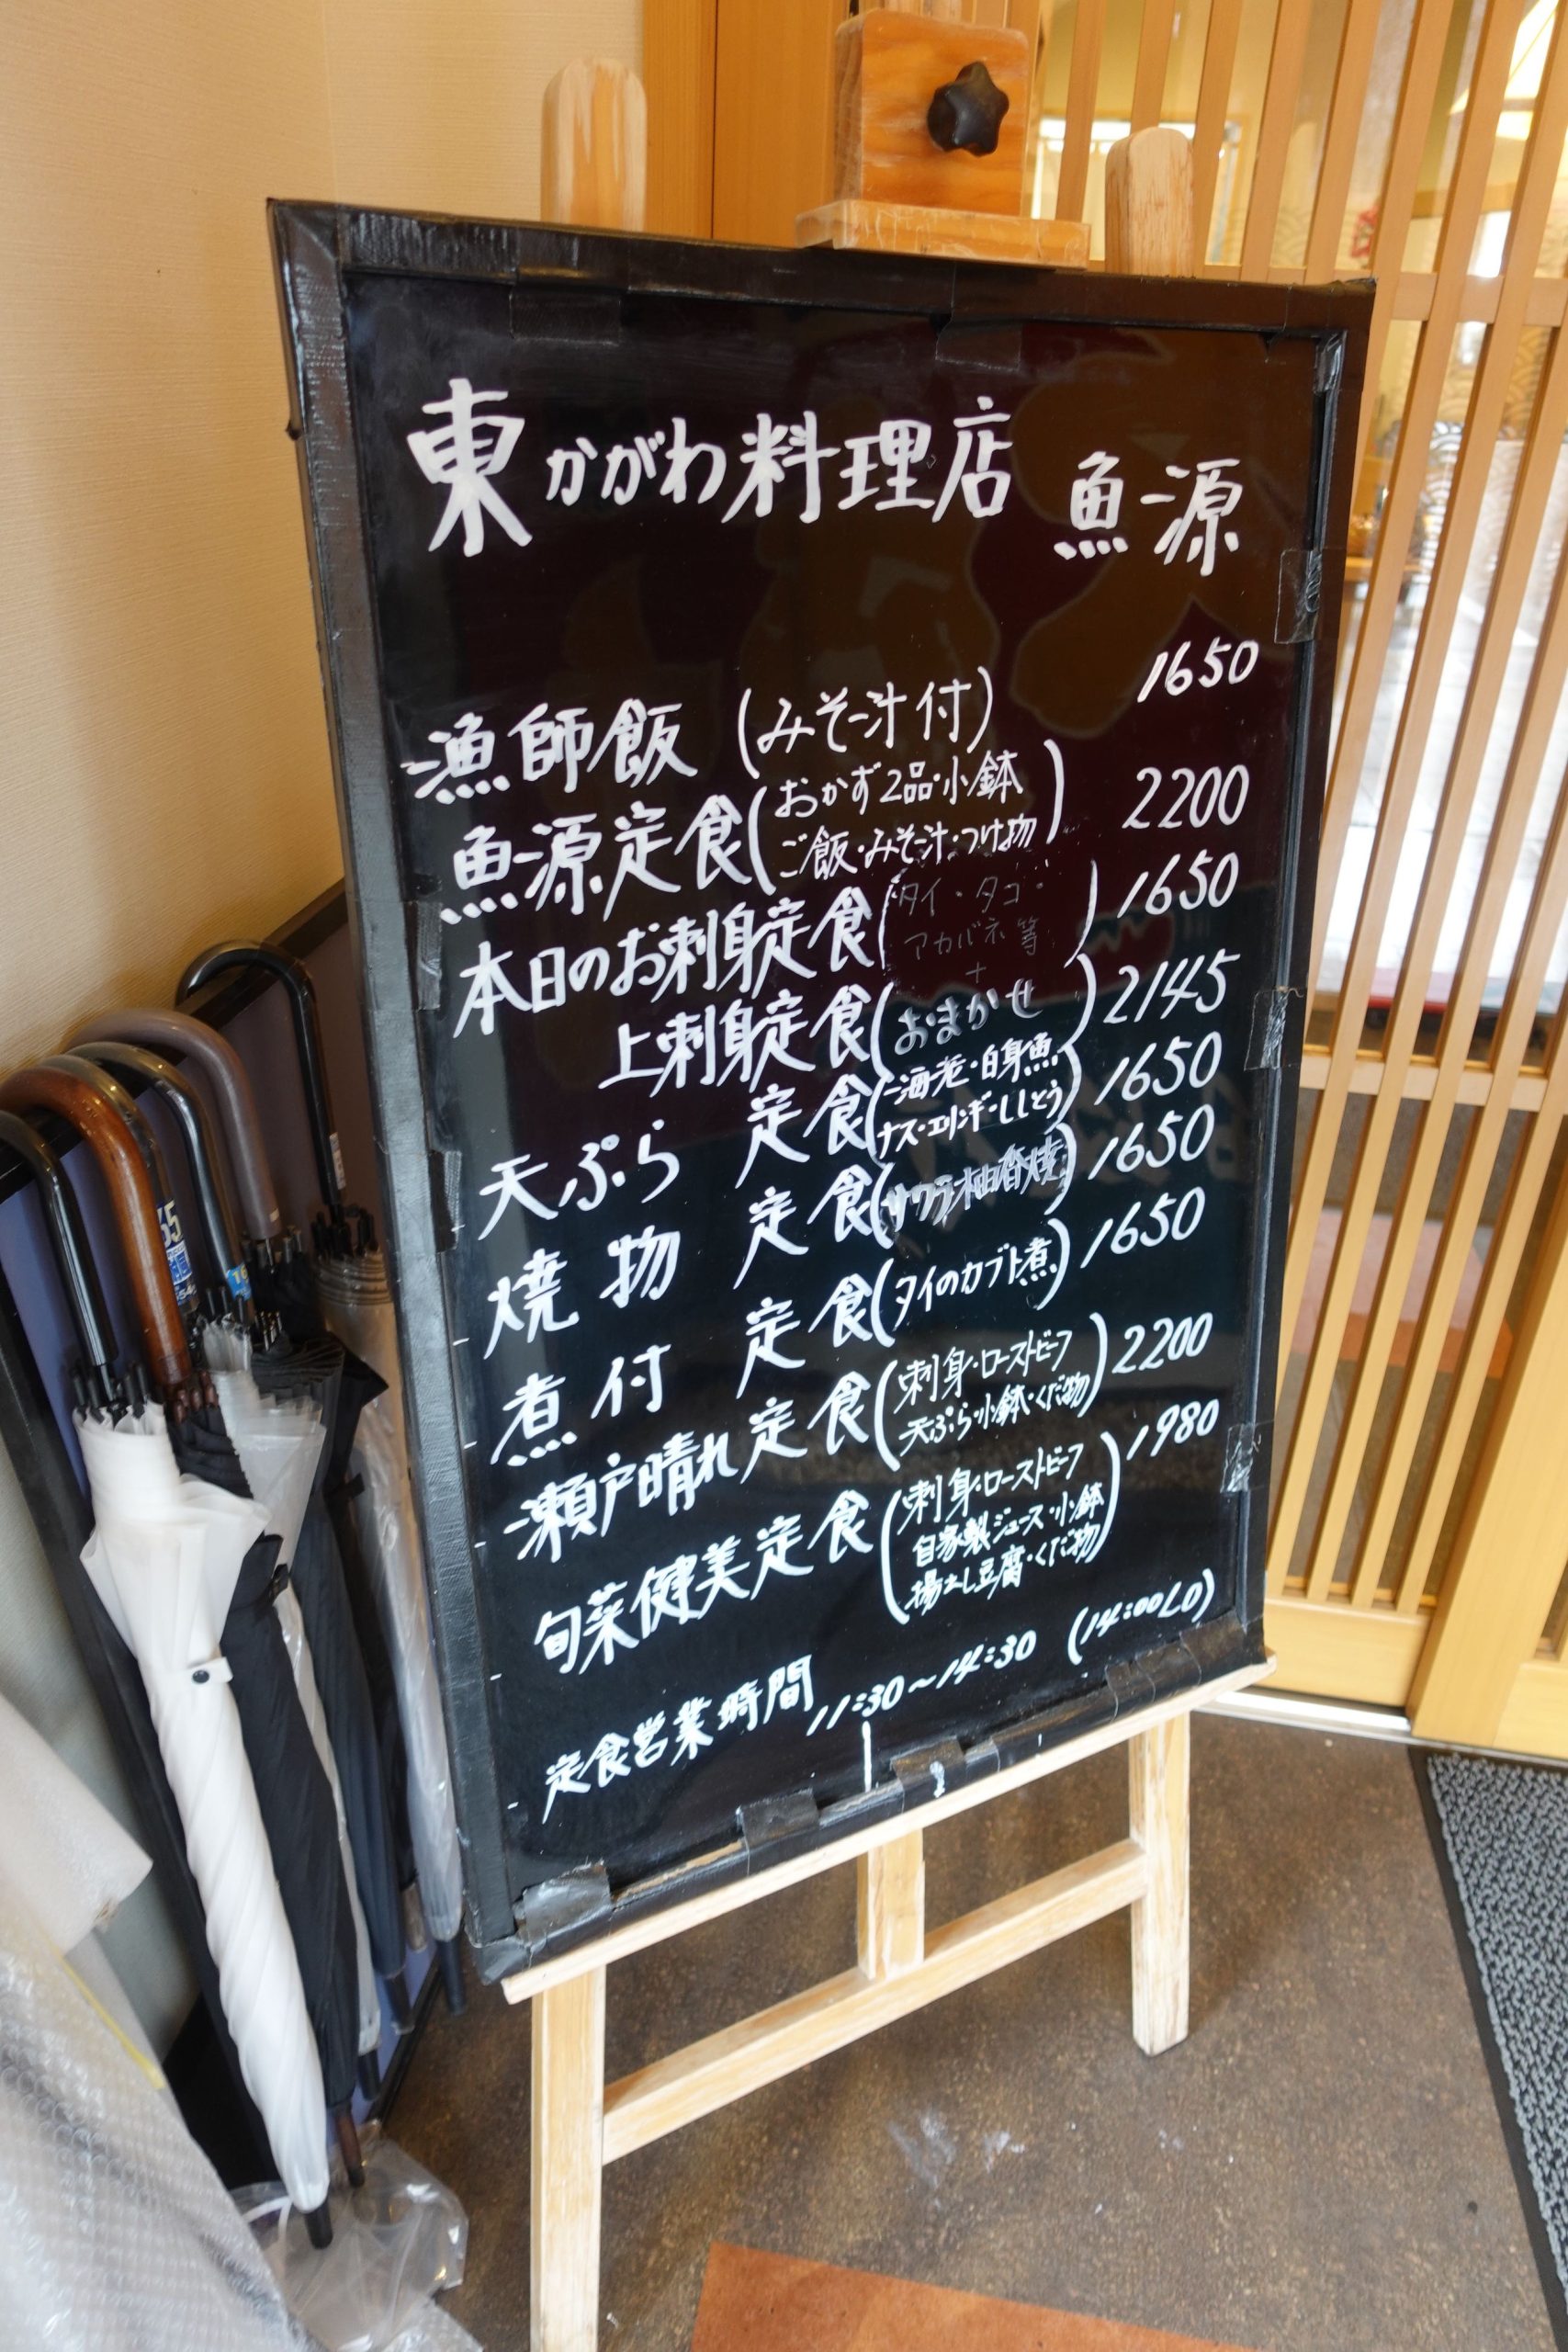 東かがわ料理店 魚源
漁師飯 (みそ汁付) 1650
魚源定食(おかず2品・小鉢
ご飯・みそ汁・つけ物) 2200
本日のお刺身定食(タイ・タコ・
アカバネ等) 1650
+
上刺身定食(おまかせ) 2145
天ぷら 定食(海老・白身魚
ナス・エリンギ・ししとう) 1650
焼物 定食(サワラ柚香焼) 1650
煮付 定食(タイのカブト煮) 1650
瀬戸晴れ定食(刺身・ローストビーフ
天ぷら・小鉢・くだ物) 2200
旬菜健美定食(刺身・ローストビーフ
自家製ジュース・小鉢
揚出し豆腐・くだ物) 1980
定食営業時間 11:30〜14:30 (14:00LO)
65